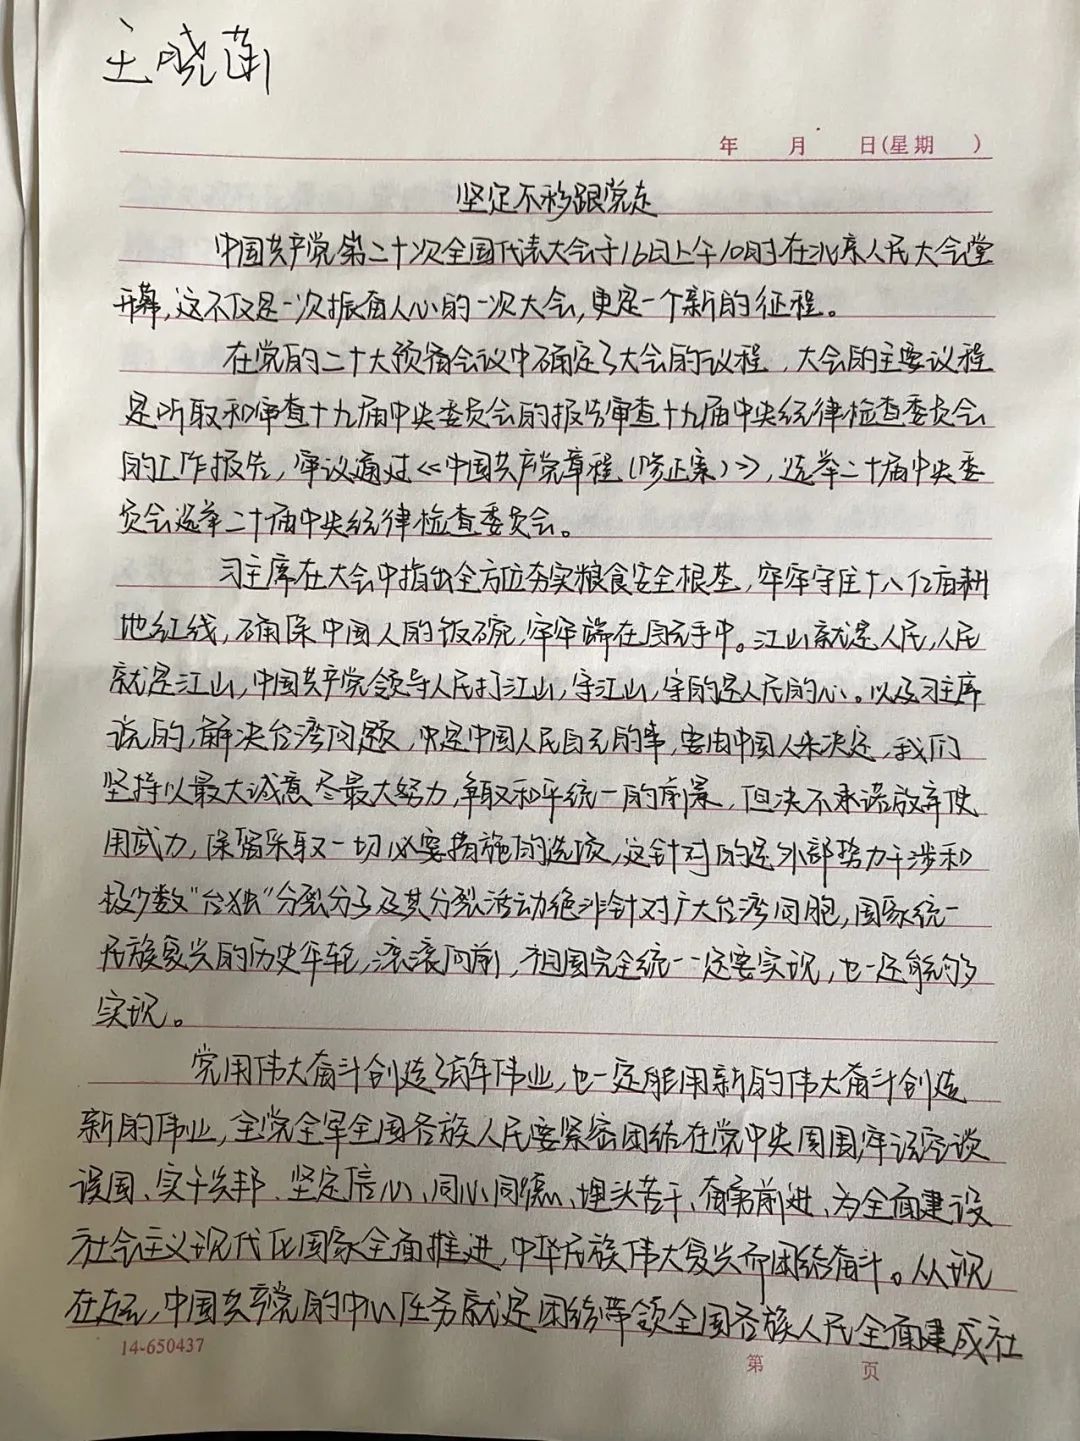 王晓菊
年 月 日(星期 )
坚定不移跟党走
中国共产党第二十次全国代表大会于16日上午10时在北京人民大会堂
开幕,这不仅是一次振奋人心的一次大会,更是一个新的征程。
在党的二十大预备会议中确定了大会的议程,大会的主要议程
是听取和审查十九届中央委员会的报告审查十九届中央纪律检查委员会
的工作报告,审议通过《中国共产党章程(修正案)》,选举二十届中央委
员会选举二十届中央纪律检查委员会。
习主席在大会中指出全方位夯实粮食安全根基,牢牢守住十八亿亩耕
地红线,确保中国人的饭碗,牢牢端在自己手中。江山就是人民,人民
就是江山,中国共产党领导人民打江山,守江山,守的是人民的心。以及习主席
说的,解决台湾问题,中是中国人民自己的事,要由中国人来决定,我们
坚持以最大诚意尽最大努力,争取和平统一的前景,但决不承诺放弃使
用武力,保留采取一切必要措施的选项,这针对的是外部势力干涉和
极少数"台独"分裂分子及其分裂活动绝非针对广大台湾同胞,国家统一
民族复兴的历史车轮,滚滚向前,祖国完全统一一定要实现,也一定能够
实现。
党用伟大奋斗创造了百年伟业,也一定能用新的伟大奋斗创造
新的伟业,全党全军全国各族人民要紧密团结在党中央周围,牢记空谈
误国、实干兴邦、坚定信心、同心同德、埋头苦干、奋勇前进、为全面建设
社会主义现代化国家全面推进,中华民族伟大复兴而团结奋斗。从现
在起,中国共产党的中心任务就是团结带领全国各族人民全面建成社
14-650437
第 页